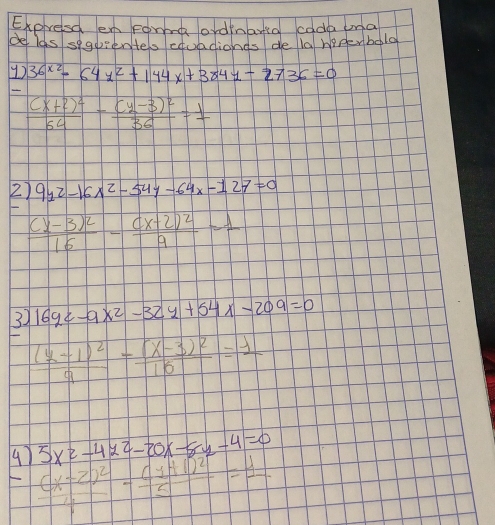 Expresa en Forma ordinaria cada una
de las siguientes ecuaciones de la hiperbola
1) 36x² - 64y² + 144x + 384y - 2736 = 0
(x+2)²/64 - (y-3)²/36 = 1
2) 9y² - 16x² - 54y - 64x - 127 = 0
(y-3)²/16 - (x+2)²/9 = 1
3) 16y² - 9x² - 32y + 54x - 209 = 0
(y-1)²/9 - (x-3)²/16 = 1
4) 5x² - 4y² - 20x - 8y - 4 = 0
(x-2)²/4 - (y+1)²/5 = 1